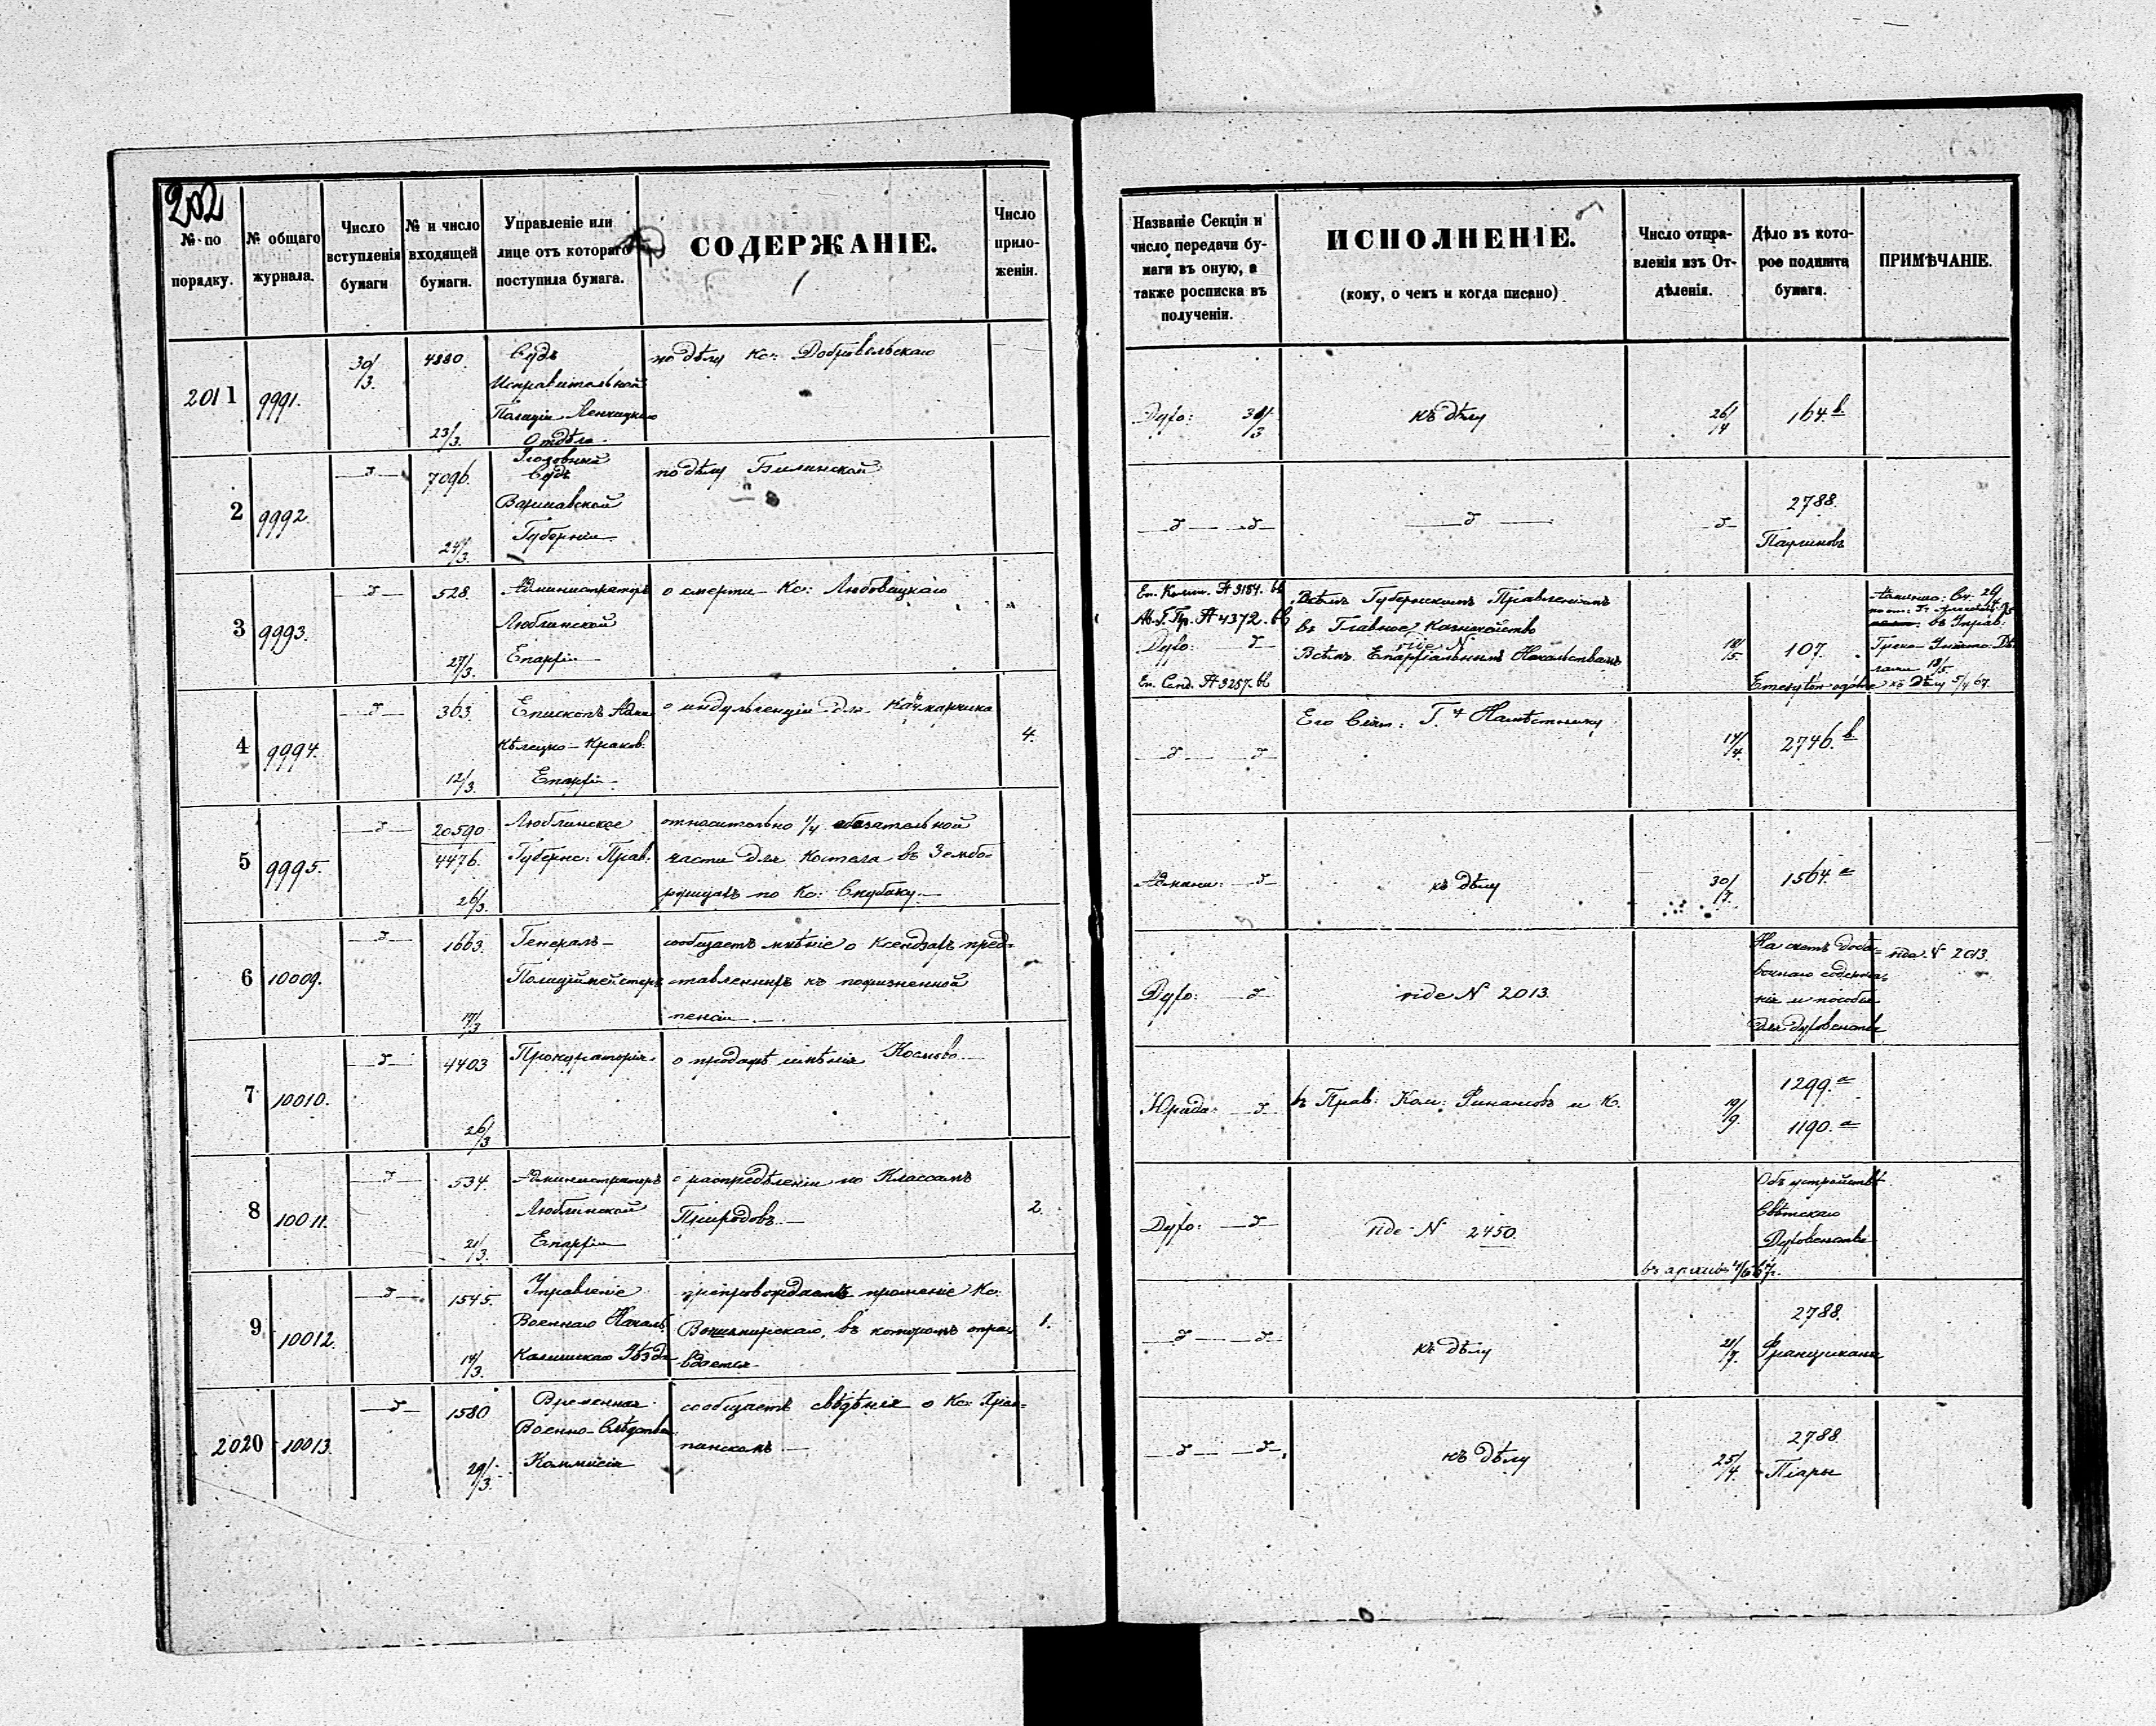 202
№ по порядку.
№ общаго журнала.
Число вступленія бумаги
№ и число входящей бумаги.
Управленіе или лице отъ котораго поступила бумага.
СОДЕРЖАНІЕ.
Число прило-женія.
Названіе Секціи и число передачи бу-маги въ оную, а также росписка въ полученіи.
ИСПОЛНЕНІЕ.
(кому, о чемъ и когда писано)
Число отпра-вленія изъ От-дѣленія.
Дѣло въ кото-рое подшита бумага.
ПРИМѢЧАНІЕ.
2011
9991.
30/3.
4880.
23/3.
Судъ
Исправительной
Полиціи Ленчицкаго
Отдѣла
по дѣлу Кс: Добровольскаго
Духо: 30/3
къ дѣлу
26/4
164.b.
2
9992.
7096.
24/3.
Уголовный
Судъ
Варшавской
Губерніи
по дѣлу Билинской
2788.
Паулиновъ
3
9993.
528.
27/3.
Администраторъ
Люблинской
Епархіи
о смерти Кс: Любовицкаго
№ 3184.
№ 4372.
Духо:
№ 3257.
Всѣмъ Губернскимъ Правленіямъ
въ Главное Казначейство
vide N
Всѣмъ Епархіальнымъ Начальствамъ
18/5.
107.
Греко-Уніат. Дѣ-
лами 18/5
къ Дѣлу 5/4 67.
4
9994.
363.
12/3.
Епископъ Адми
Кѣлецко-Краков.
Епархіи
о индульгенціи для Качмарчика
4.
Его Сіят: Г. Намѣстнику
14/4.
2746.b.
5
9995.
20590
4476.
26/3.
Люблинское
Губернс: Прав.
относительно 1/4 обязательной
части для Костела въ Зембо-
ржицахъ по Кс: Скубаку.
Админи:
къ дѣлу
30/7.
1564.a
6
10009.
1663.
17/3
Генералъ-
Полиціймейстеръ
сообщаетъ мнѣніе о Ксендзахъ пред-
ставленныхъ къ пожизненной
пенсіи
Духо:
vide N 2013.
На счетъ доба-
вочнаго содержа-
нія и пособія
для духовенства
vide N 2013.
7
10010.
4403
26/3
Прокураторія
о продажѣ имѣнія Космово
Юрид:
въ Прав: Ком: Финансовъ и К.
19/9.
1299.a
1190.a
8
10011.
534.
21/3.
Администраторъ
Люблинской
Епархіи
о распредѣленіи по Классамъ
Приходовъ
2.
Духо:
vide N 2450.
Объ устройствѣ
Свѣтскаго
Духовенства
въ архивъ
9
10012.
1545.
14/3.
Управленіе
Военнаго Началь.
Калишскаго Уѣзда
препровождаетъ прошеніе Кс:
въ которомъ оправ-
вдается
1.
къ дѣлу
21/7.
2788.
Францискане
2020
10013.
1580
29/3.
Временная
Военно-Слѣдствен.
Коммисія
сообщаетъ свѣдѣнія о Кс:
къ дѣлу
25/4.
2788
Піары